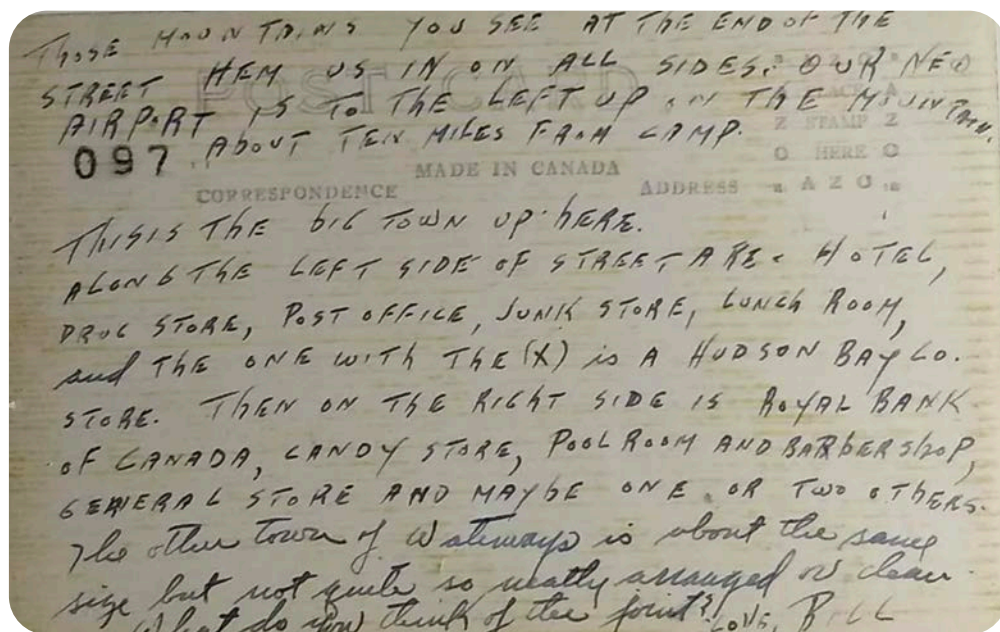 THOSE MOUNTAINS YOU SEE AT THE END OF THE
STREET HEM US IN ON ALL SIDES. OUR NEW
AIRPORT IS TO THE LEFT UP ON THE MOUNTAIN.
ABOUT TEN MILES FROM CAMP.
POST CARD
AZO
PLACE
Z STAMP Z
O HERE O
AZO
097
MADE IN CANADA
CORRESPONDENCE
ADDRESS
THIS IS THE BIG TOWN UP HERE.
ALONG THE LEFT SIDE OF STREET ARE. HOTEL,
DRUG STORE, POST OFFICE, JUNK STORE, LUNCH ROOM,
and THE ONE WITH THE (X) is A HUDSON BAY CO.
STORE. THEN ON THE RIGHT SIDE IS ROYAL BANK
OF CANADA, CANDY STORE, POOL ROOM AND BARBERSHOP,
GENERAL STORE AND MAYBE ONE OR TWO OTHERS.
The other town of Waterways is about the same
size but not quite so neatly arranged or clean.
What do you think of the joint? LOVE, BILL